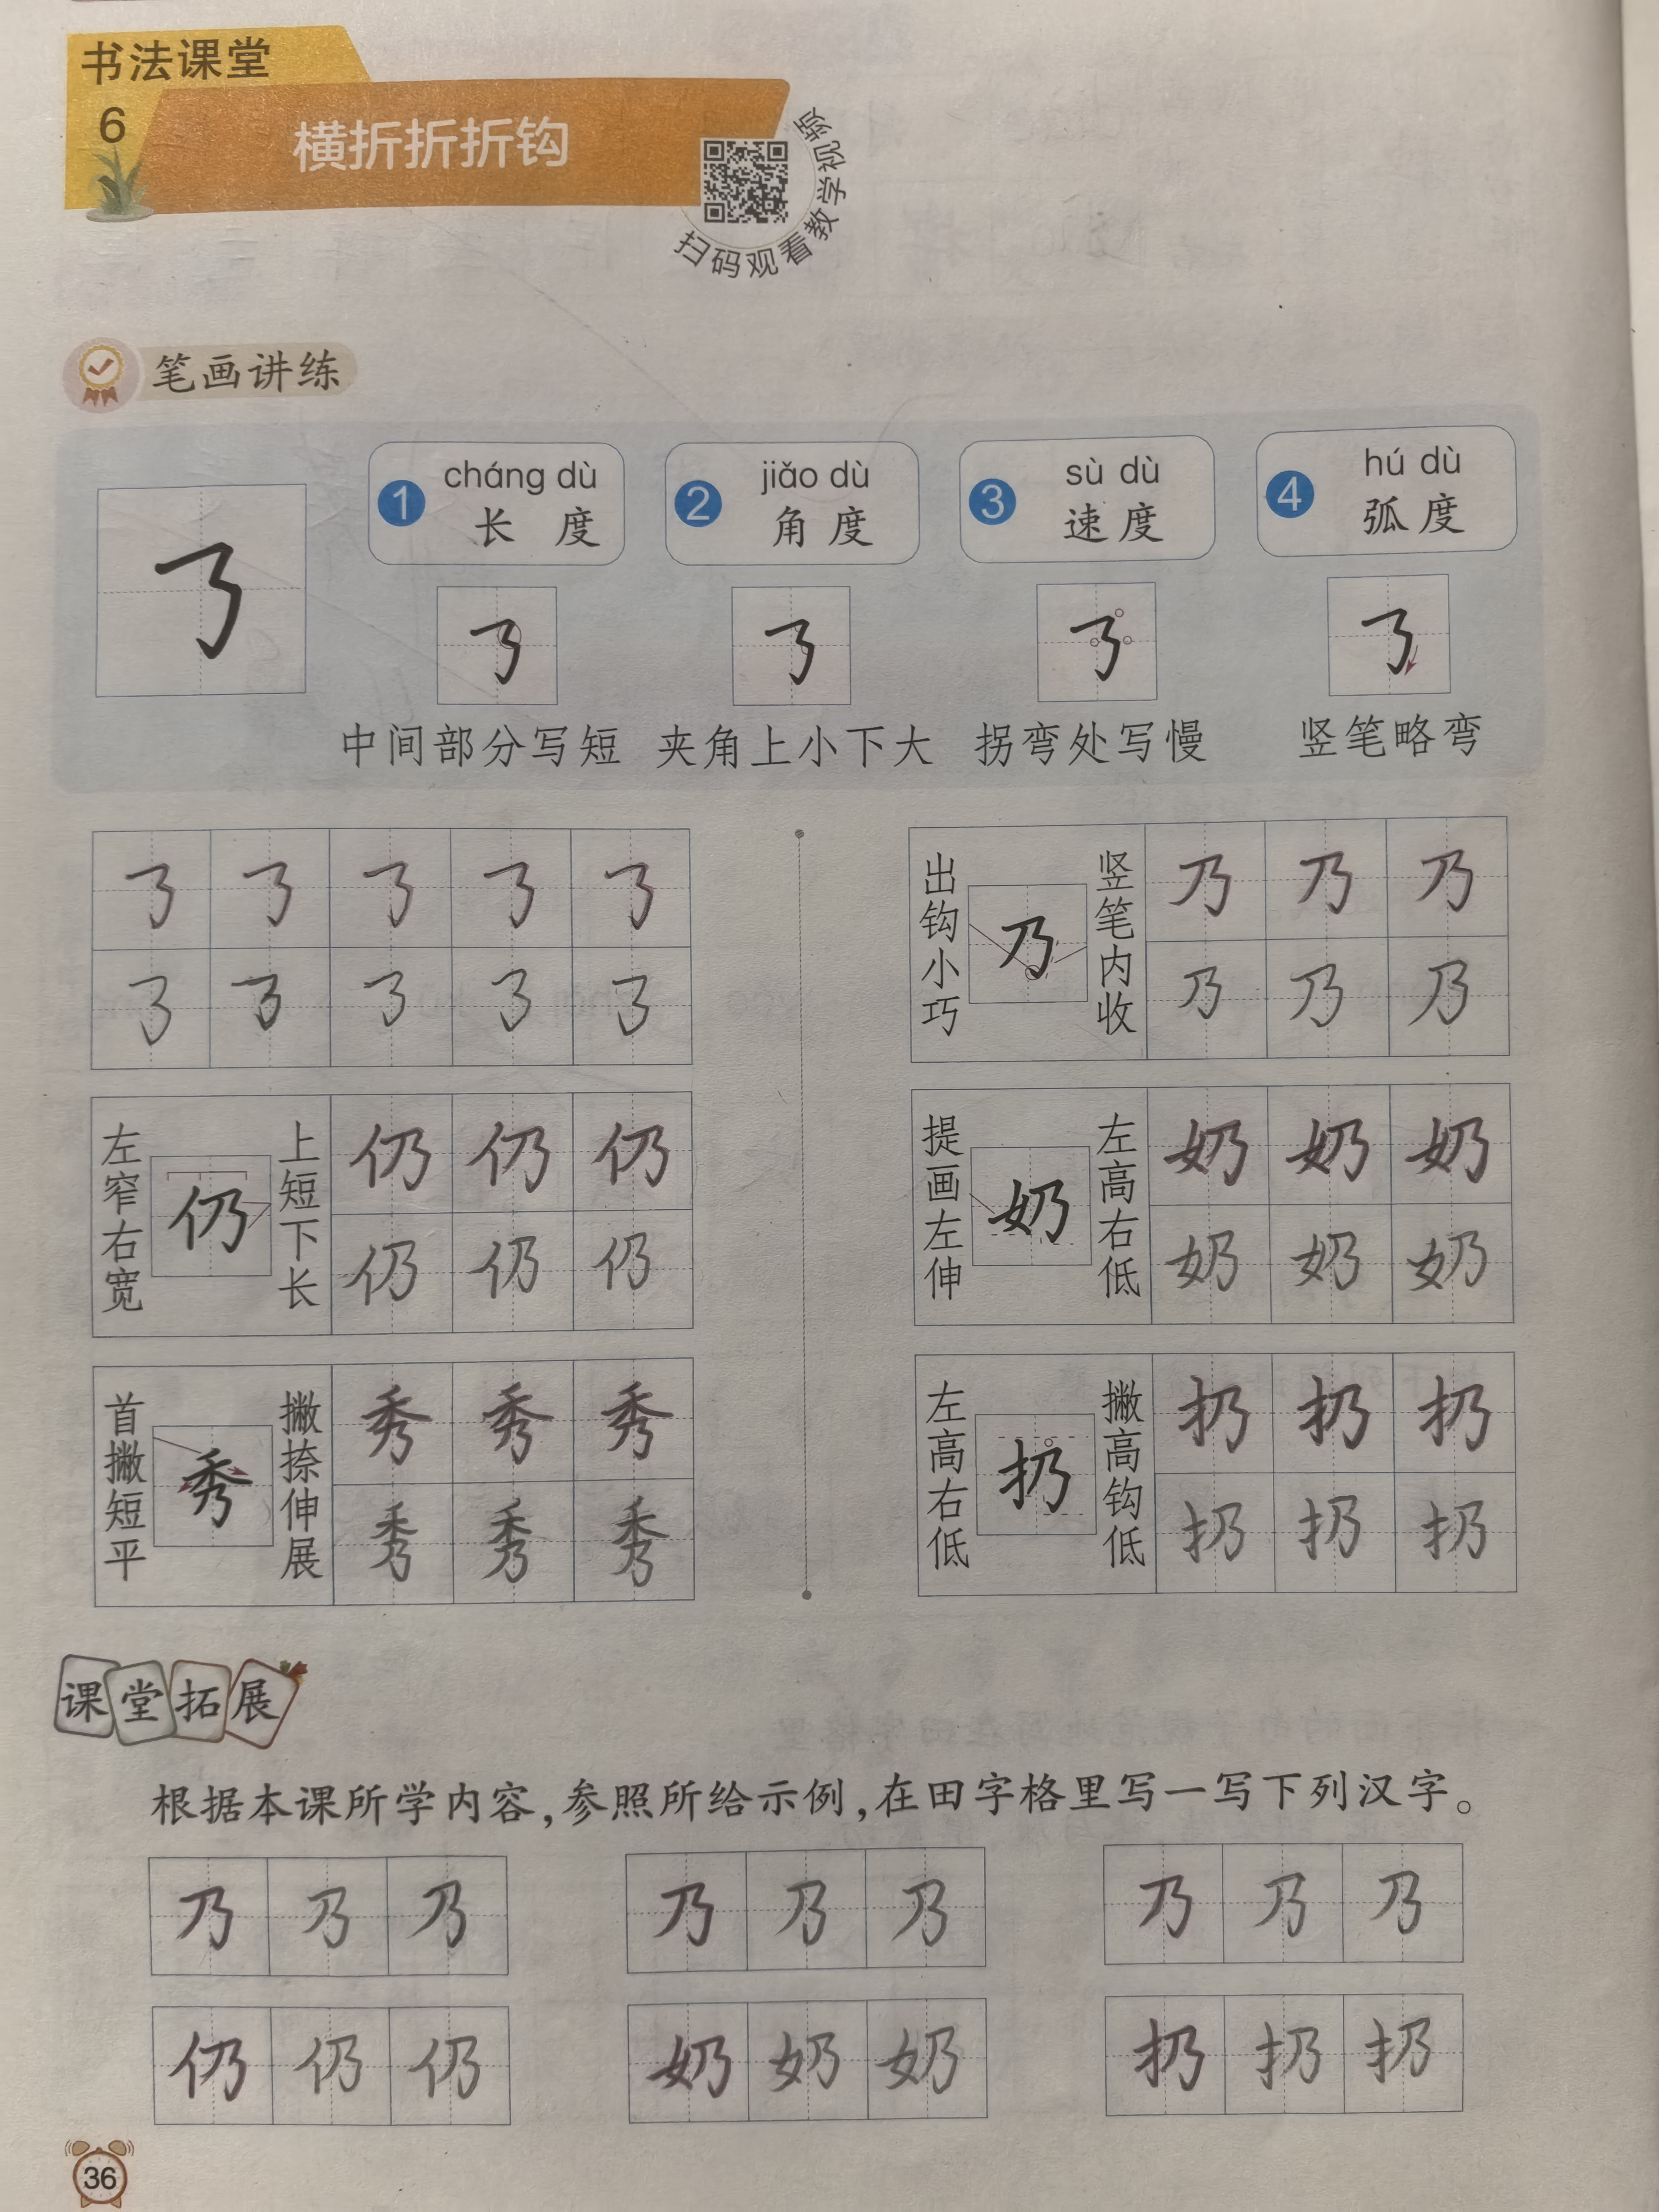 书法课堂
6
横折折折钩
扫码观看教学视频
笔画讲练
1 cháng dù 长度
2 jiǎo dù 角度
3 sù dù 速度
4 hú dù 弧度
中间部分写短 夹角上小下大 拐弯处写慢 竖笔略弯
出钩小巧 乃 竖笔内收 乃 乃 乃
乃 乃 乃
左窄右宽 仍 上短下长 仍 仍 仍
仍 仍 仍
提画左伸 奶 左高右低 奶 奶 奶
奶 奶 奶
首撇短平 秀 撇捺伸展 秀 秀 秀
秀 秀 秀
左高右低 扔 撇高钩低 扔 扔 扔
扔 扔 扔
课堂拓展
根据本课所学内容,参照所给示例,在田字格里写一写下列汉字。
乃 乃 乃 乃 乃 乃 乃 乃 乃
仍 仍 仍 奶 奶 奶 扔 扔 扔
36